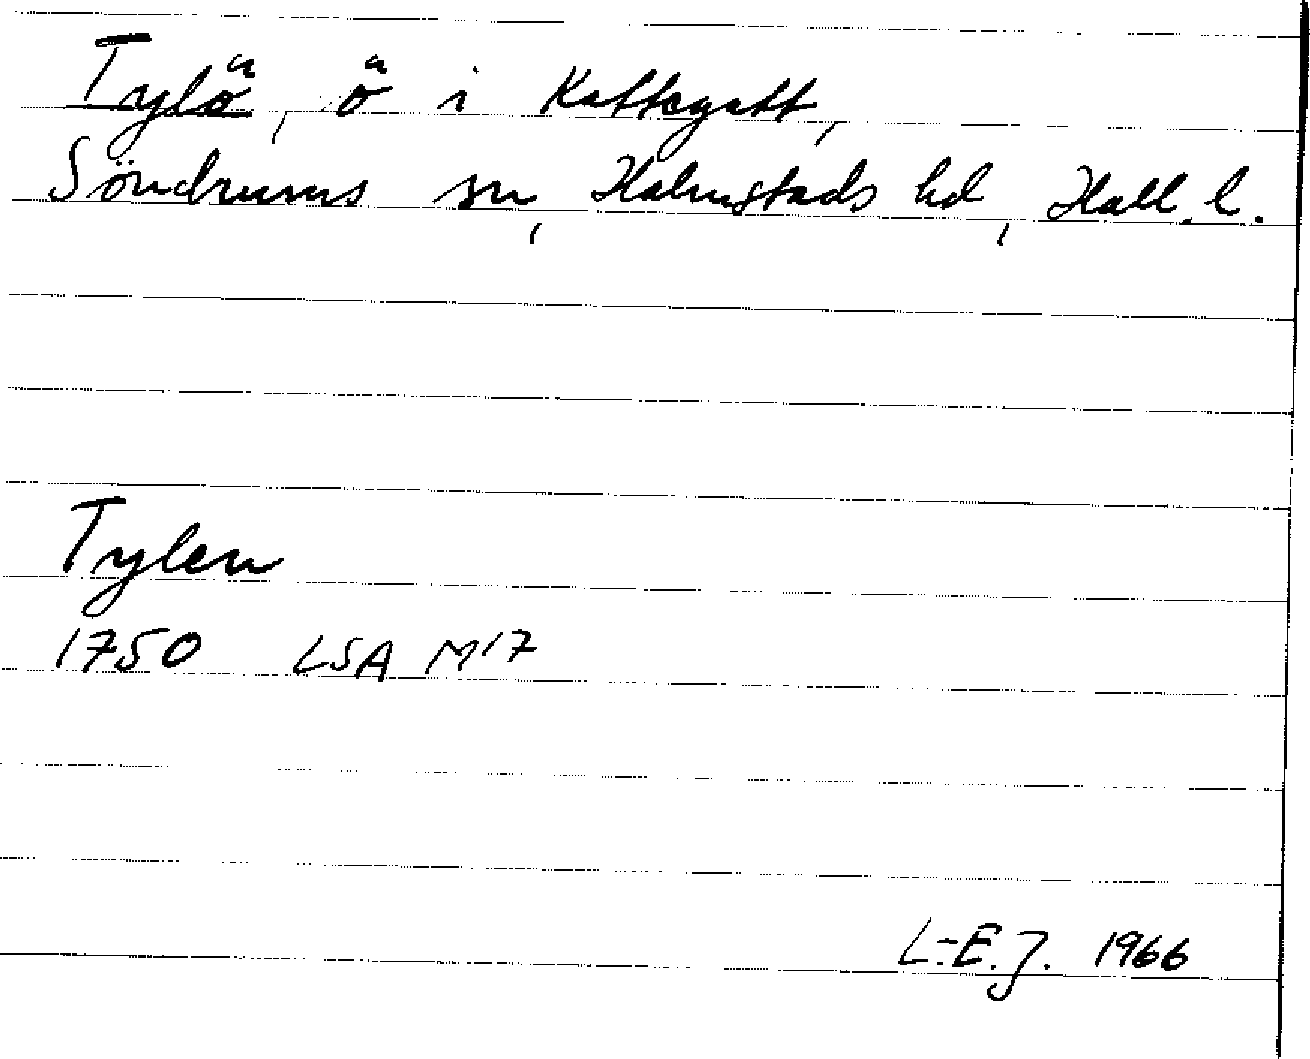 Tylö, ö i Kattegatt,
Söndrums sn, Halmstads hd, Hall. l.
Tylen
1750 LSA M17
L-E.J. 1966